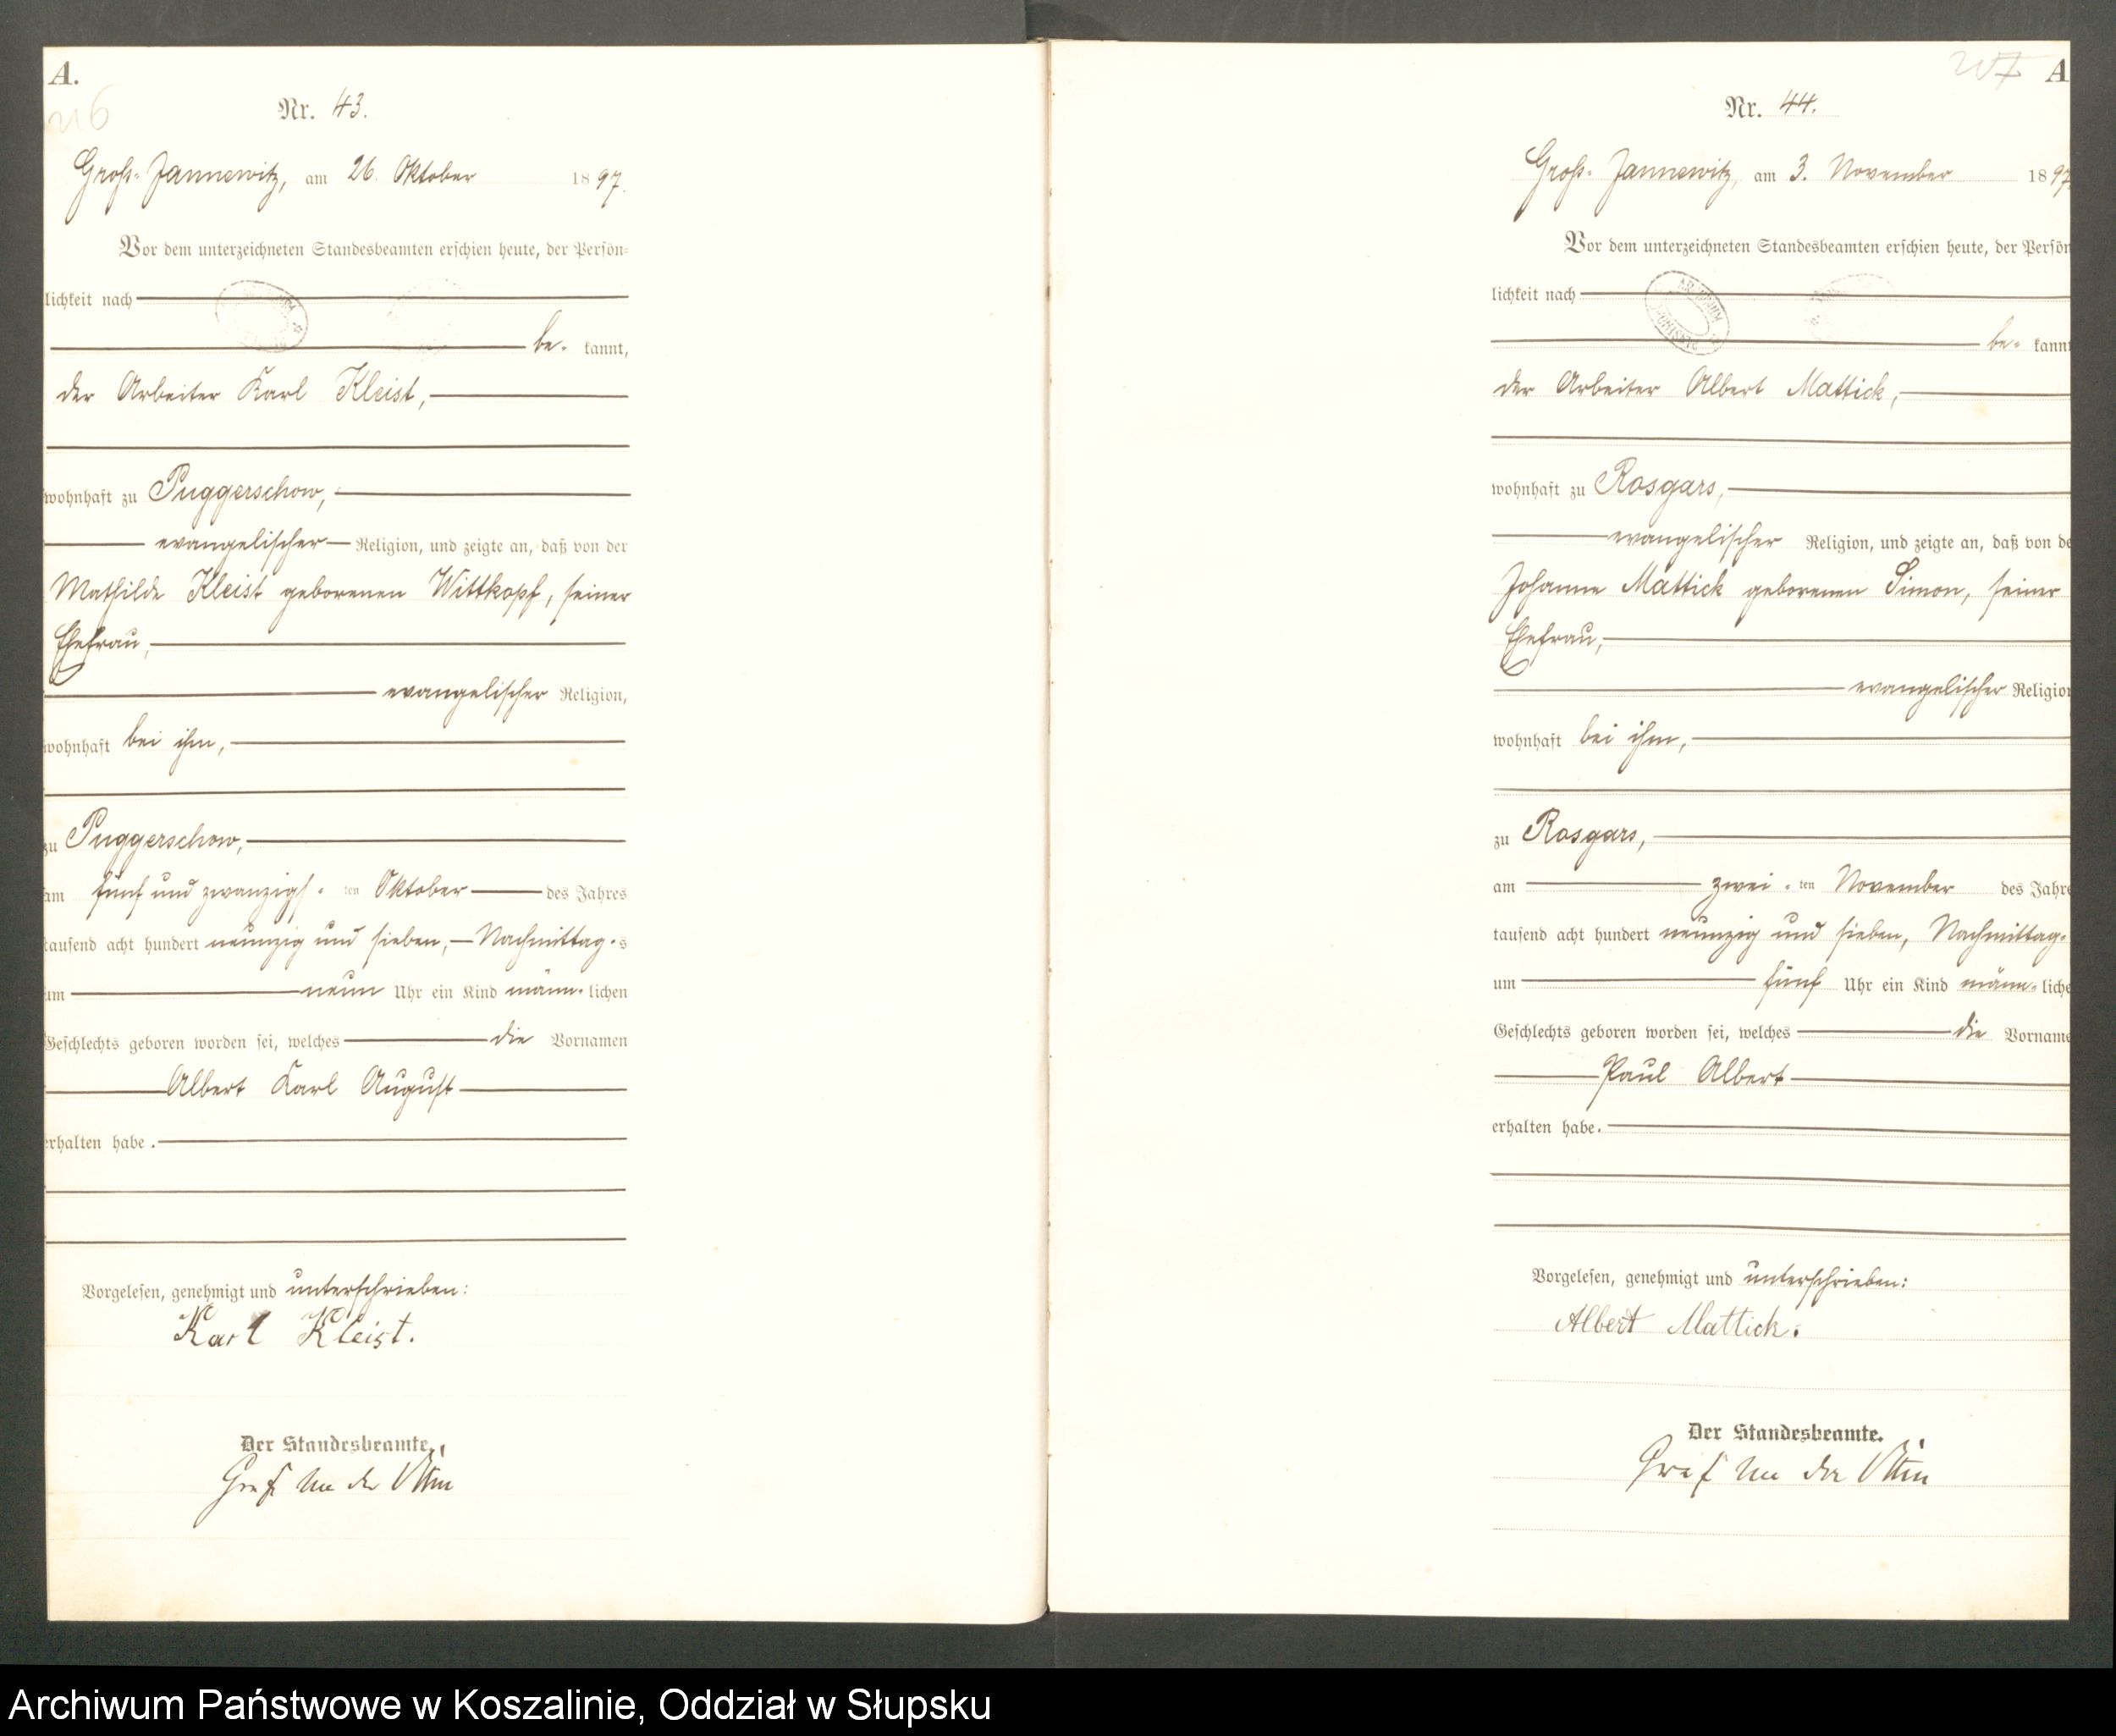 A.
216
Nr. 43.
Groß-Jannewitz, am 26. Oktober 1897.
Vor dem unterzeichneten Standesbeamten erschien heute, der Persön-
lichkeit nach
be- kannt,
der Arbeiter Karl Kleist,
wohnhaft zu Puggerschow,
evangelischer Religion, und zeigte an, daß von der
Mathilde Kleist geborenen Wittkopf, seiner
Ehefrau,
evangelischer Religion,
wohnhaft bei ihm,
zu Puggerschow,
am fünf und zwanzigs-ten Oktober des Jahres
tausend acht hundert neunzig und sieben, Nachmittag-s
um neun Uhr ein Kind männ-lichen
Geschlechts geboren worden sei, welches die Vornamen
Albert Karl August
erhalten habe.
Vorgelesen, genehmigt und unterschrieben:
Karl Kleist.
Der Standesbeamte.
Graf
217 A
Nr. 44.
Groß-Jannewitz, am 3. November 1897
Vor dem unterzeichneten Standesbeamten erschien heute, der Persön
lichkeit nach
ARCHIWUM
be- kannt
der Arbeiter Albert Mattick,
wohnhaft zu Rosgars,
evangelischer Religion, und zeigte an, daß von de
Johanne Mattick geborenen Simon, seiner
Ehefrau,
evangelischer Religion
wohnhaft bei ihm,
zu Rosgars,
am zwei-ten November des Jahre
tausend acht hundert neunzig und sieben, Nachmittag-
um fünf Uhr ein Kind männ-liche
Geschlechts geboren worden sei, welches die Vorname
Paul Albert
erhalten habe.
Vorgelesen, genehmigt und unterschrieben:
Albert Mattick.
Der Standesbeamte.
Graf
Archiwum Państwowe w Koszalinie, Oddział w Słupsku